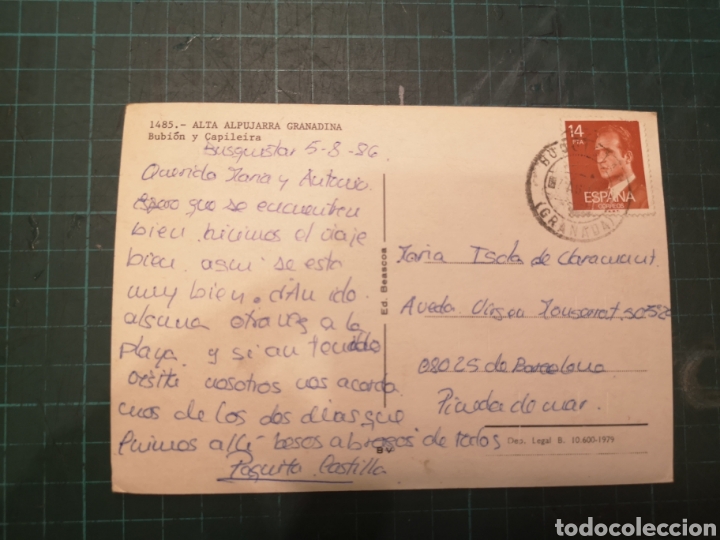 1485.- ALTA ALPUJARRA GRANADINA
Bubión y Capileira
Busquistar 5-8-86
Querida Maria y Antonio.
Espero que se encuentren
bien. hicimos el viaje
bien. aqui se esta
muy bien. han ido
alguna otra vez a la
playa. y si an tenido
visita nosotros nos acorda
mos de los dos dias que
fuimos allí besos abrasos de todos
Paquita Castilla
Ed. Beascoa
14
PTA
ESPAÑA
CORREOS
(GRANADA)
Maria Isola de Claramunt.
Aveda Virgen Monserrat
08025 de Barcelona
Pineda de mar.
Dep. Legal B. 10.600-1979
todocoleccion.net